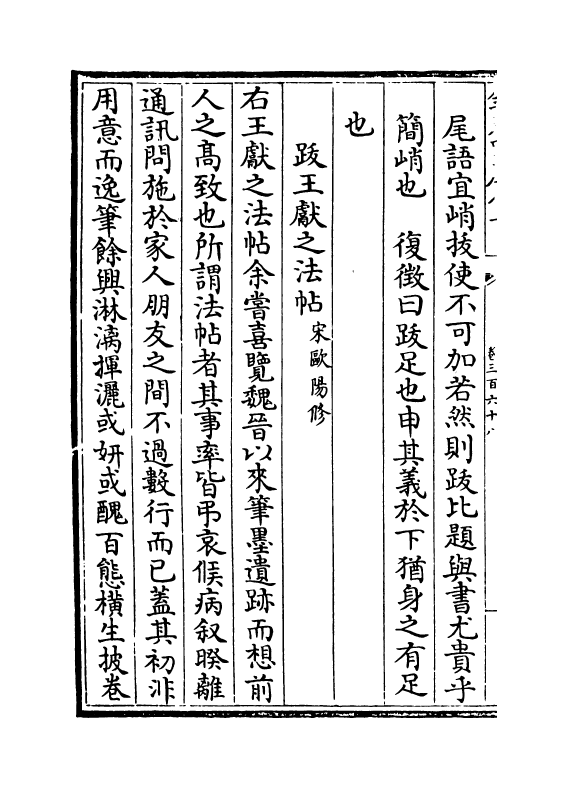 尾語宜峭拔使不可加若然則跋比題與書尤貴乎
簡峭也　復徵曰跋足也申其義於下猶身之有足
也
跋王獻之法帖宋歐陽修
右王獻之法帖余嘗喜覽魏晉以來筆墨遺跡而想前
人之髙致也所謂法帖者其事率皆弔哀候病叙暌離
通訊問施於家人朋友之間不過數行而已蓋其初非
用意而逸筆餘興淋漓揮灑或妍或醜百態橫生披卷
卷三百六十八